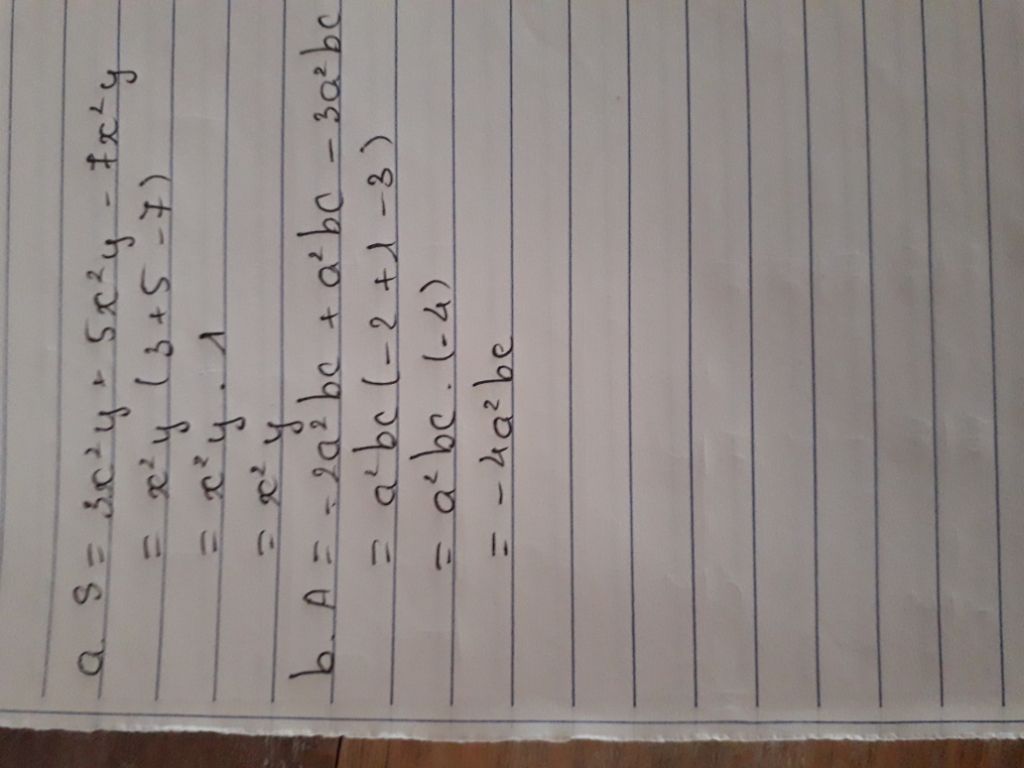 a. S = 3x²y + 5x²y - 7x²y
= x²y (3 + 5 - 7)
= x²y . 1
= x²y
b. A = - 2a²bc + a²bc - 3a²bc
= a²bc (- 2 + 1 - 3)
= a²bc . (- 4)
= - 4a²bc